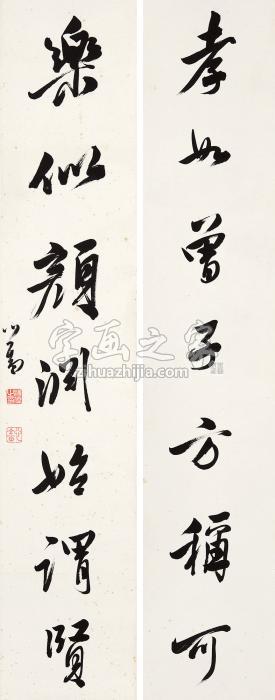 孝如曾子方稱可
樂似顔淵始謂賢
心畬
字画之家
zihuazhijia.com